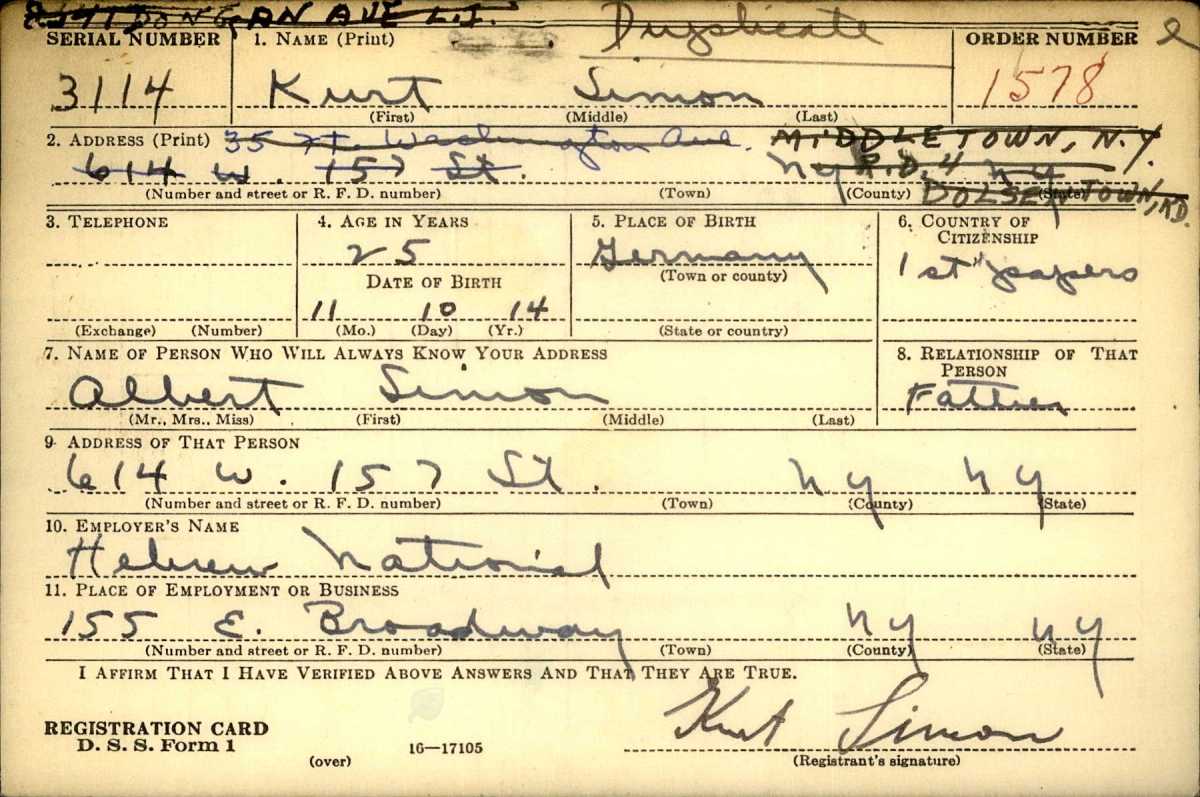 DONGAN AVE L.I.
Duplicate
SERIAL NUMBER 1. NAME (Print) ORDER NUMBER e
3114 Kurt Simon 1578
(First) (Middle) (Last)
2. ADDRESS (Print) 35 Ft. Washington Ave. MIDDLETOWN, N.Y.
614 W. 157 St. NY R.D. 4 NY
(Number and street or R. F. D. number) (Town) (County) (State)
DOLSENTOWN, RD.
3. TELEPHONE 4. AGE IN YEARS 5. PLACE OF BIRTH 6. COUNTRY OF CITIZENSHIP
25 Germany 1st papers
DATE OF BIRTH (Town or county)
11 10 14
(Exchange) (Number) (Mo.) (Day) (Yr.) (State or country)
7. NAME OF PERSON WHO WILL ALWAYS KNOW YOUR ADDRESS 8. RELATIONSHIP OF THAT PERSON
Albert Simon Father
(Mr., Mrs., Miss) (First) (Middle) (Last)
9. ADDRESS OF THAT PERSON
614 W. 157 St. NY NY
(Number and street or R. F. D. number) (Town) (County) (State)
10. EMPLOYER'S NAME
Hebrew National
11. PLACE OF EMPLOYMENT OR BUSINESS
155 E. Broadway NY NY
(Number and street or R. F. D. number) (Town) (County) (State)
I AFFIRM THAT I HAVE VERIFIED ABOVE ANSWERS AND THAT THEY ARE TRUE.
Kurt Simon
REGISTRATION CARD
D. S. S. Form 1 16—17105
(over) (Registrant's signature)